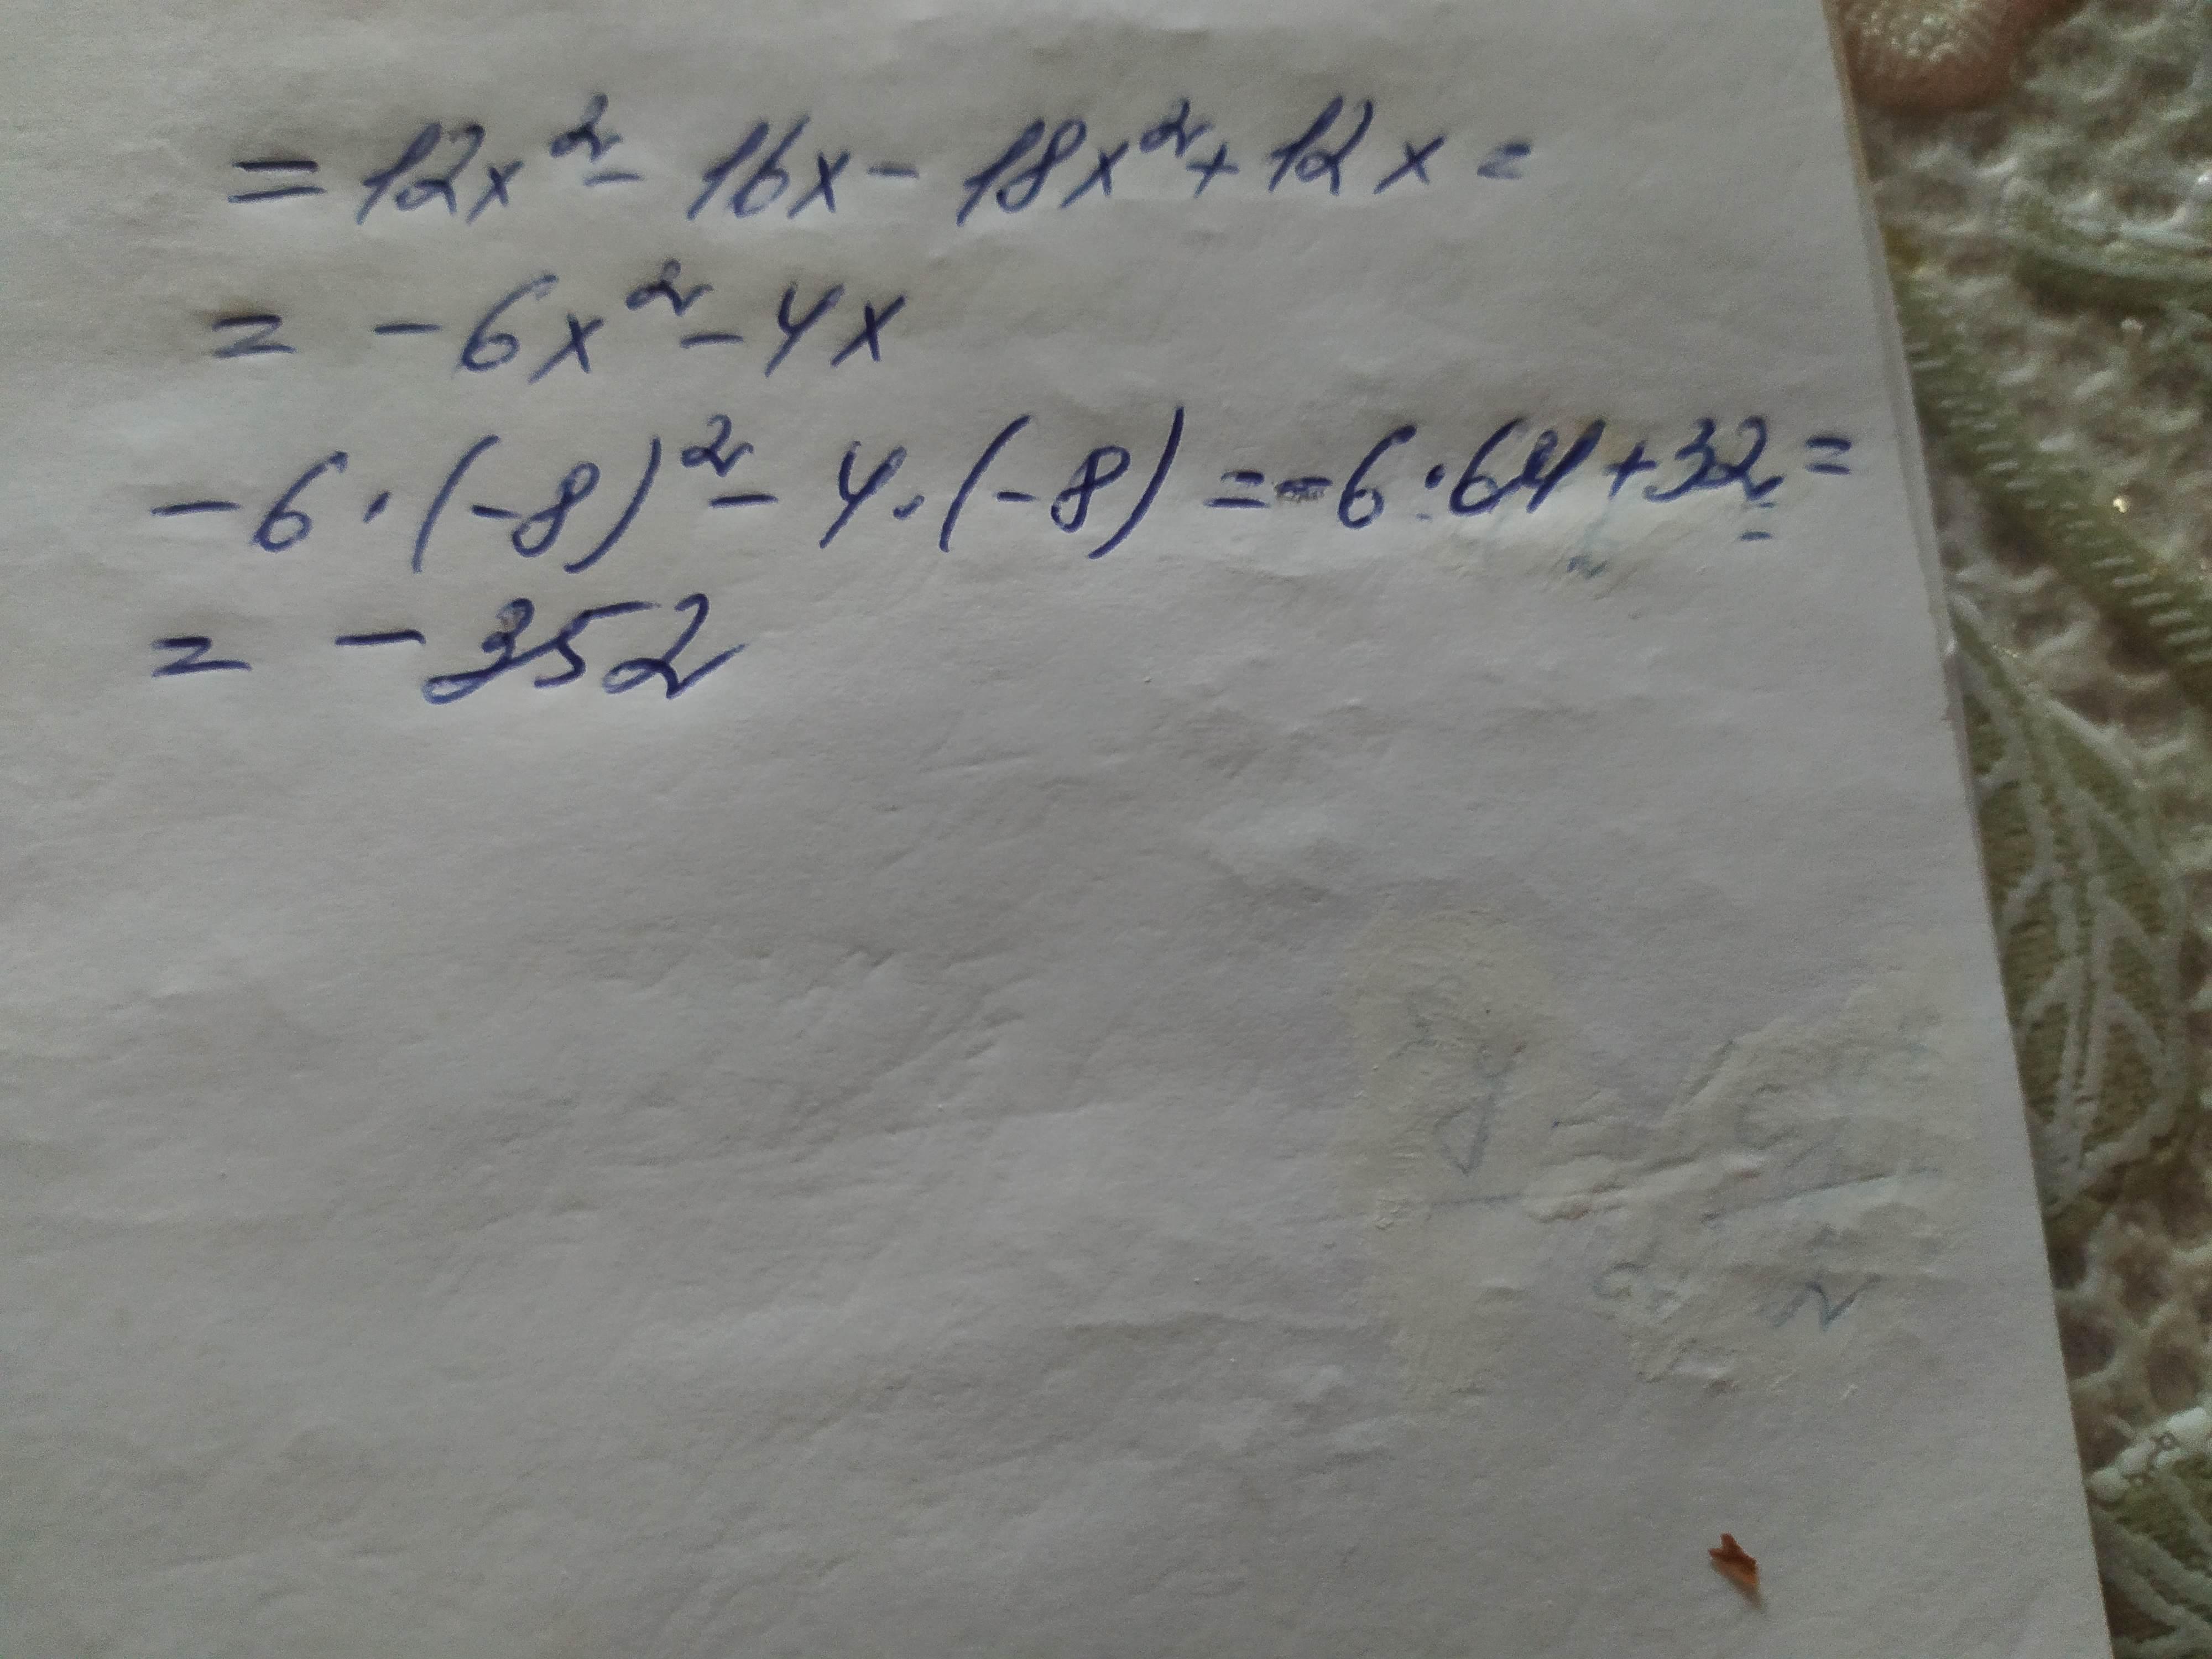 = 12x² - 16x - 18x² + 12x =
= - 6x² - 4x
- 6 · (-8)² - 4 · (-8) = - 6 · 64 + 32 =
= - 352